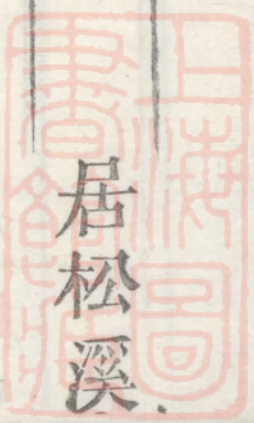 居松溪
上海圖書館藏